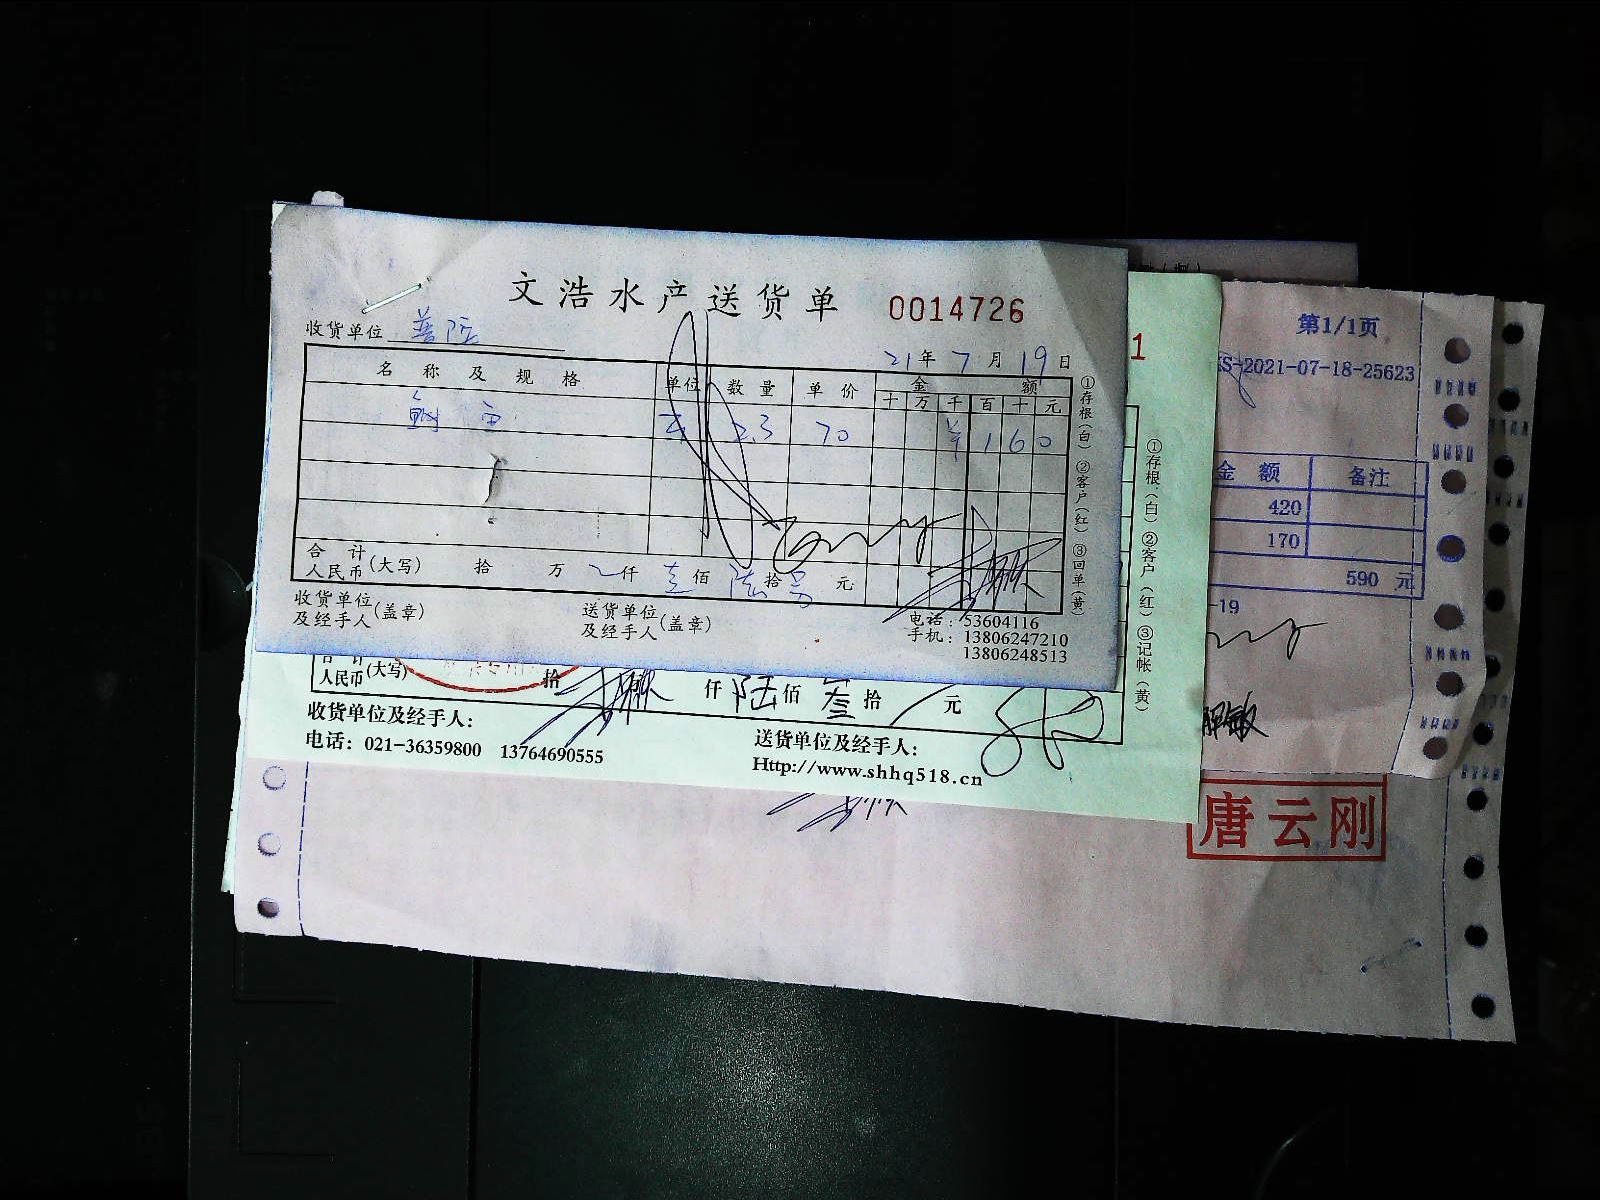 文浩水产送货单 0014726
收货单位 普陀
21年7月19日
名称及规格 单位 数量 单价 金额
十 万 千 百 十 元
鱼 2.3 70 ¥ 1 6 0
合计
人民币(大写) 拾 万 仟 壹 佰 陆 拾 元
收货单位
及经手人(盖章)
送货单位
及经手人(盖章)
电话:53604116
手机:13806247210
13806248513
①存根(白) ②客户(红) ③回单(黄)
1
①存根(白) ②客户(红) ③记帐(黄)
合计
人民币(大写) 拾 仟 陆 佰 叁 拾 元
收货单位及经手人:
电话: 021-36359800 13764690555
送货单位及经手人:
Http://www.shhq518.cn
第1/1页
S-2021-07-18-25623
金额 备注
420
170
590 元
-19
唐云刚